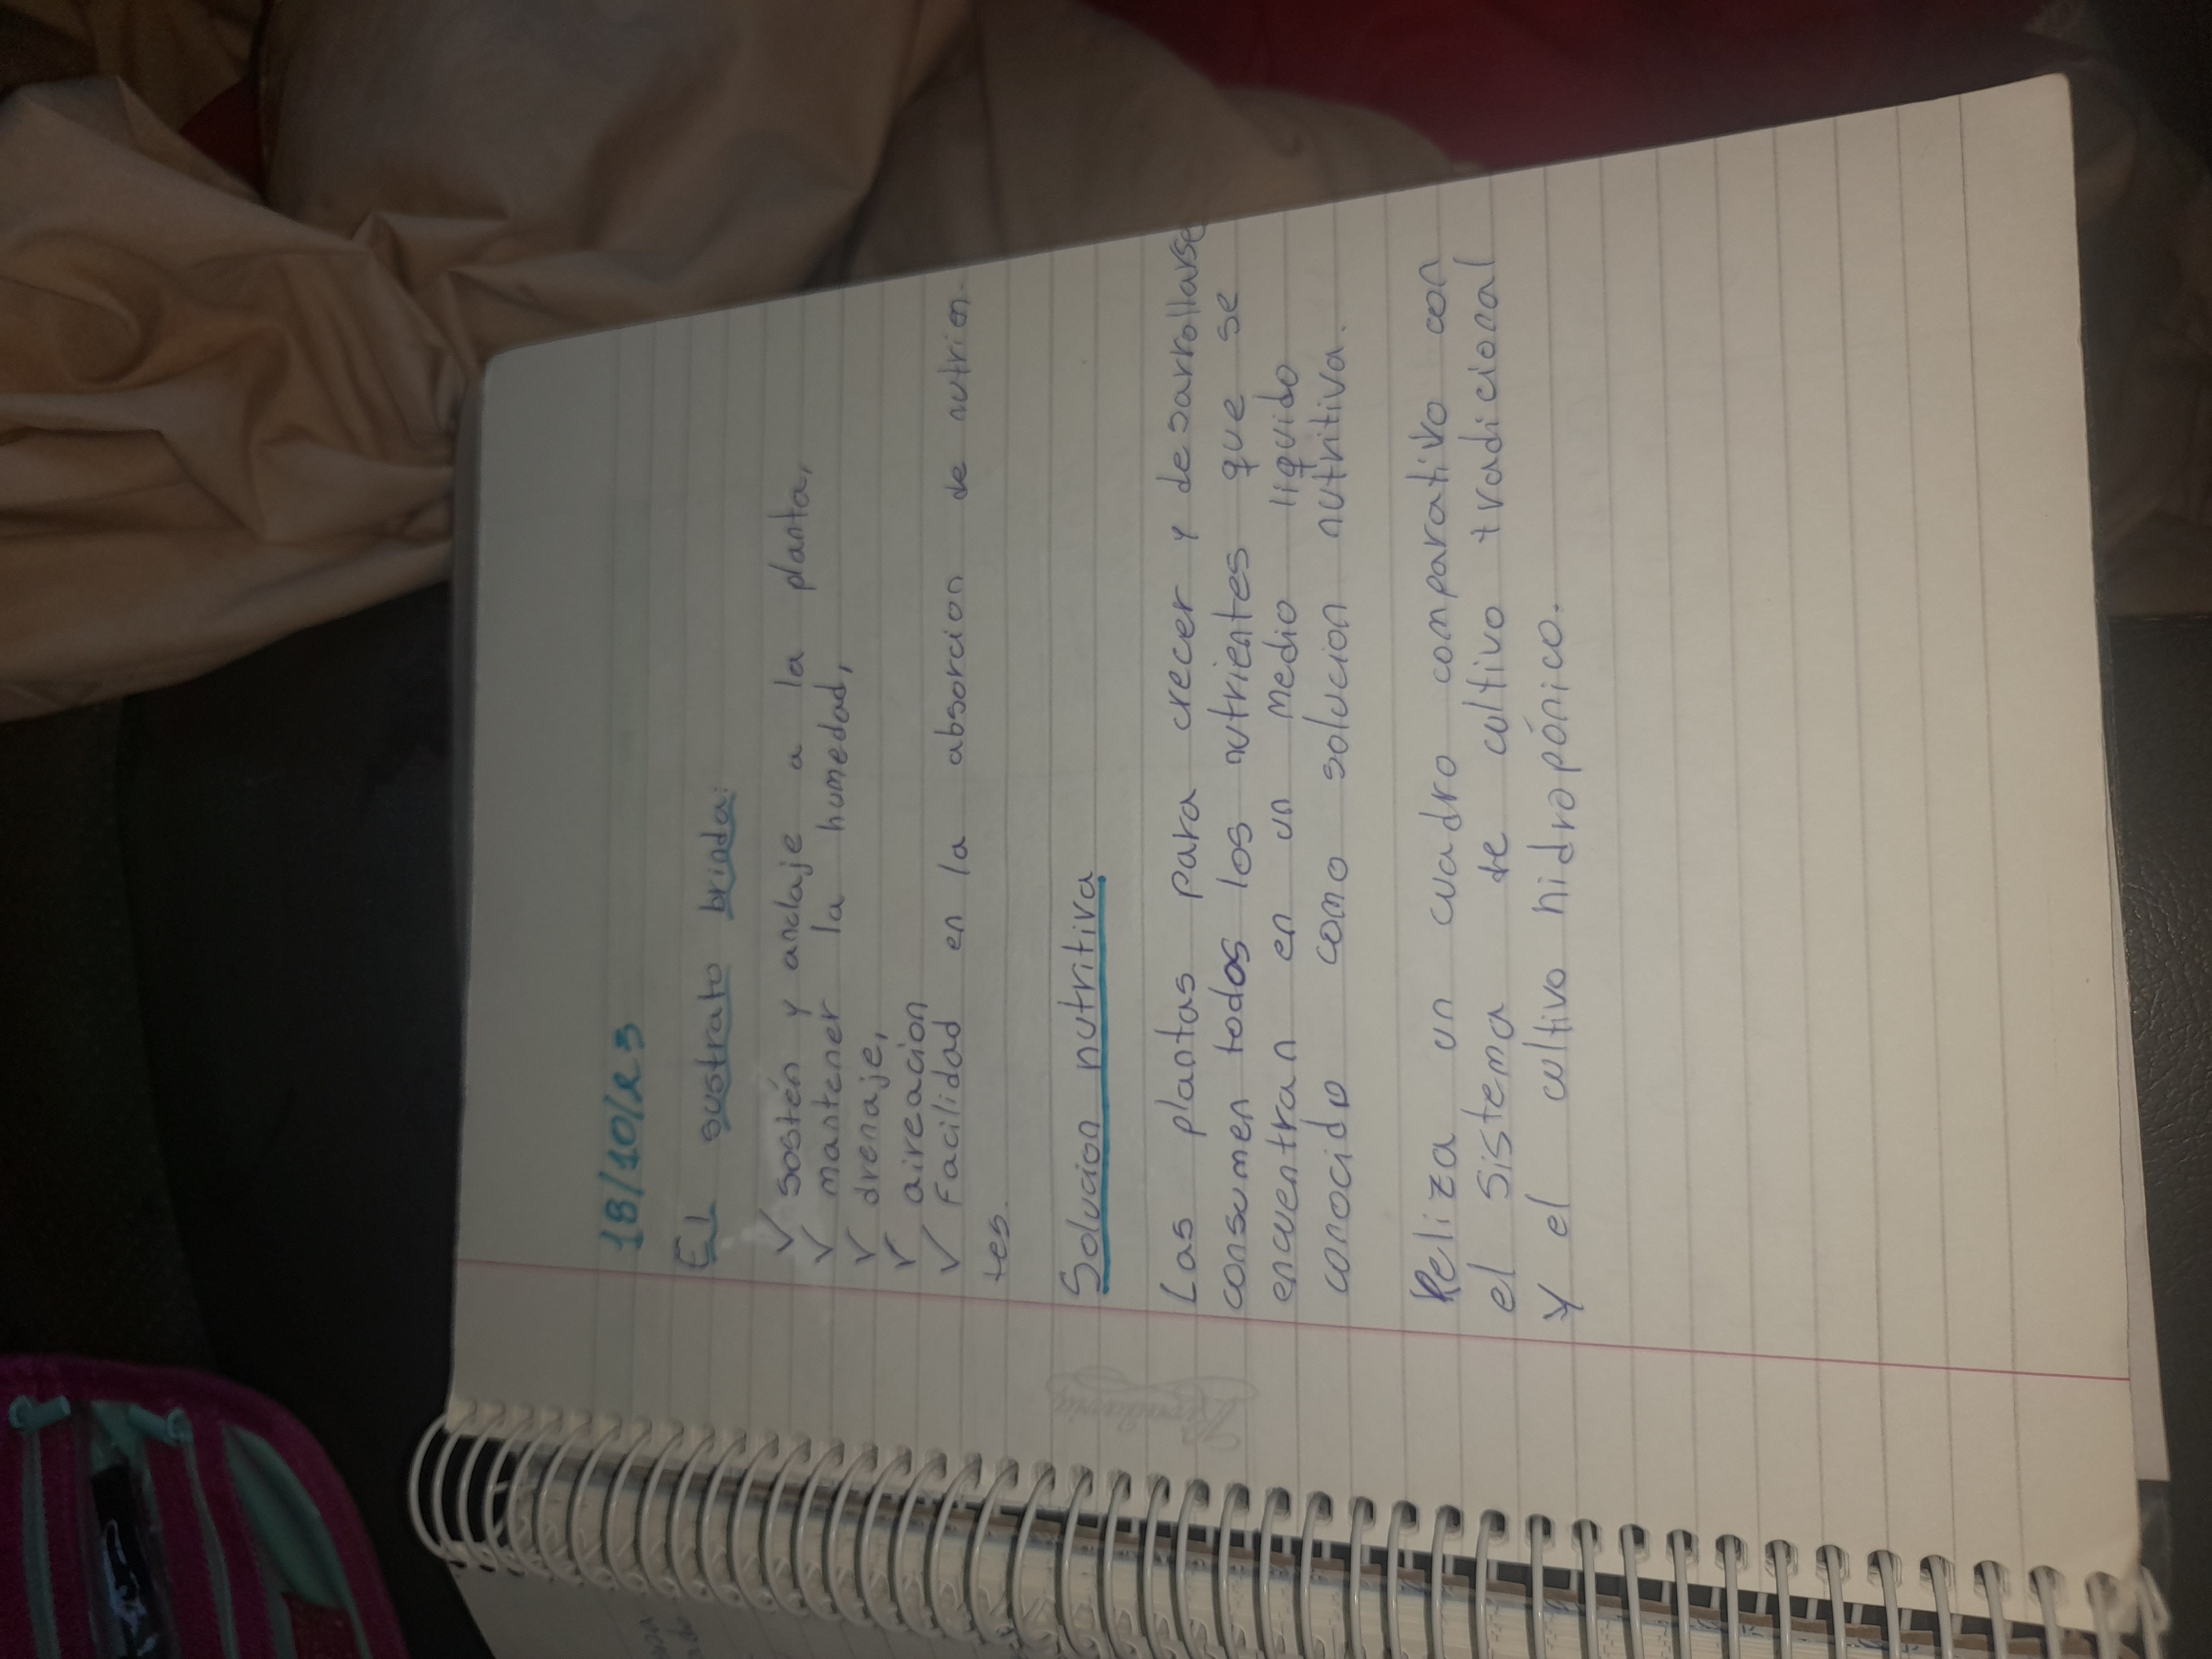 18/10/23
El sustrato brinda:
✓ sostén y anclaje a la planta,
✓ mantener la humedad,
✓ drenaje,
✓ aireacion
✓ Facilidad en la absorcion de nutrien-
tes.
Solucion nutritiva
Las plantas para crecer y desarrollarse
consumen todos los nutrientes que se
encuentran en un medio liquido
conocido como solucion nutritiva.
Reliza un cuadro comparativo con
el sistema de cultivo tradicional
y el cultivo hidropónico.
Rivadavia